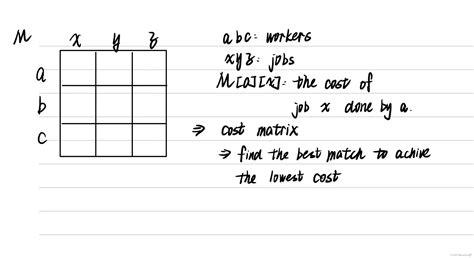 M x y z
a
b
c
a b c: workers
x y z: jobs
M[a][x]: the cost of
job x done by a.
⇒ cost matrix
⇒ find the best match to achive
the lowest cost